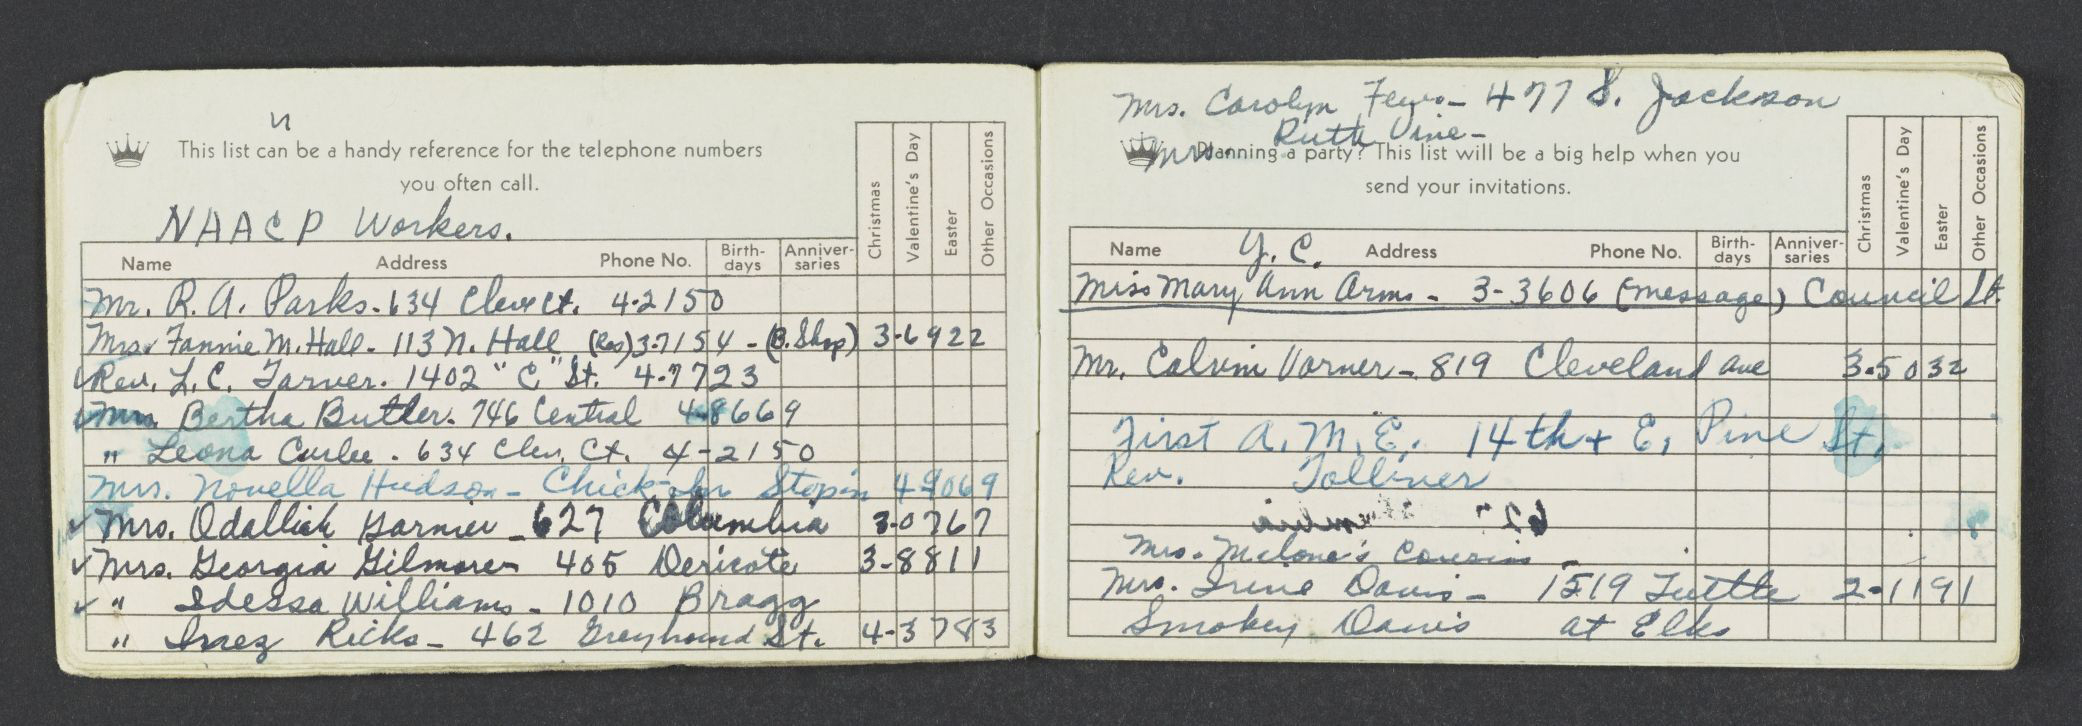 This list can be a handy reference for the telephone numbers
you often call.
NAACP Workers.
Christmas
Valentine's Day
Easter
Other Occasions
Name Address Phone No. Birth-days Anniver-saries
Mr. R. A. Parks. 634 Cleve Ct. 4-2150
Mrs. Fannie M. Hall - 113 N. Hall (Res) 3-7154 - (B. Shop) 3-6922
✓ Rev. L. C. Tarver. 1402 "C" St. 4-7723
✓ Mrs. Bertha Butler. 746 Central 4-8669
" Leona Curlee. 634 Clev. Ct. 4-2150
Mrs. Novella Hudson - Chick-In Stopin 4-9069
✓ Mrs. Odallich Garnier - 627 Columbia 3-0767
✓ Mrs. Georgia Gilmore - 405 Dericote 3-8811
✓ " Idessa Williams - 1010 Bragg
" Inez Ricks - 462 Greyhound St. 4-3783
Mrs. Carolyn - 477 S. Jackson
Mrs. Ruth Vine -
Planning a party? This list will be a big help when you
send your invitations.
Christmas
Valentine's Day
Easter
Other Occasions
Y. C.
Name Address Phone No. Birth-days Anniver-saries
Miss Mary Ann Arms - 3-3606 (message) Council St.
Mr. Calvin Varner - 819 Cleveland Ave 3-5032
First A. M. E. 14th + E. Pine St.
Rev. Tolliver
Mrs. Malone's Cousin
Mrs. Irene Davis - 1519 Tuttle 2-1191
Smokey Davis at Elks